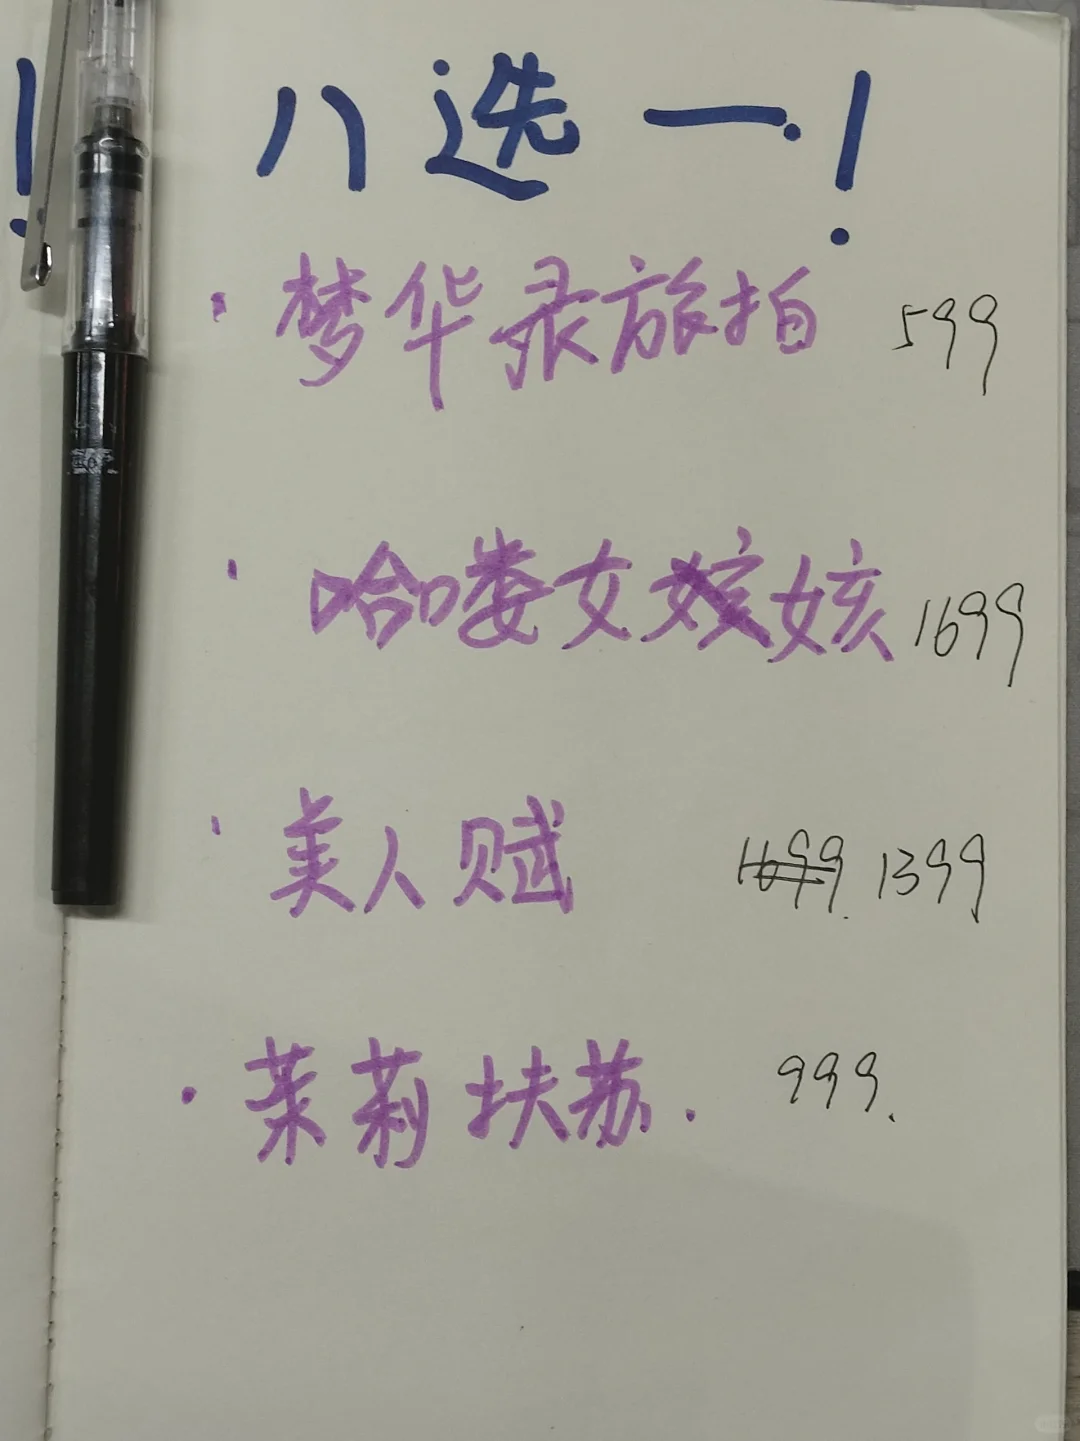 ! 八选一.!
· 梦华录旅拍 599
· 哈喽女孩 1699
· 美人赋 1699. 1399
· 茉莉扶苏. 999.